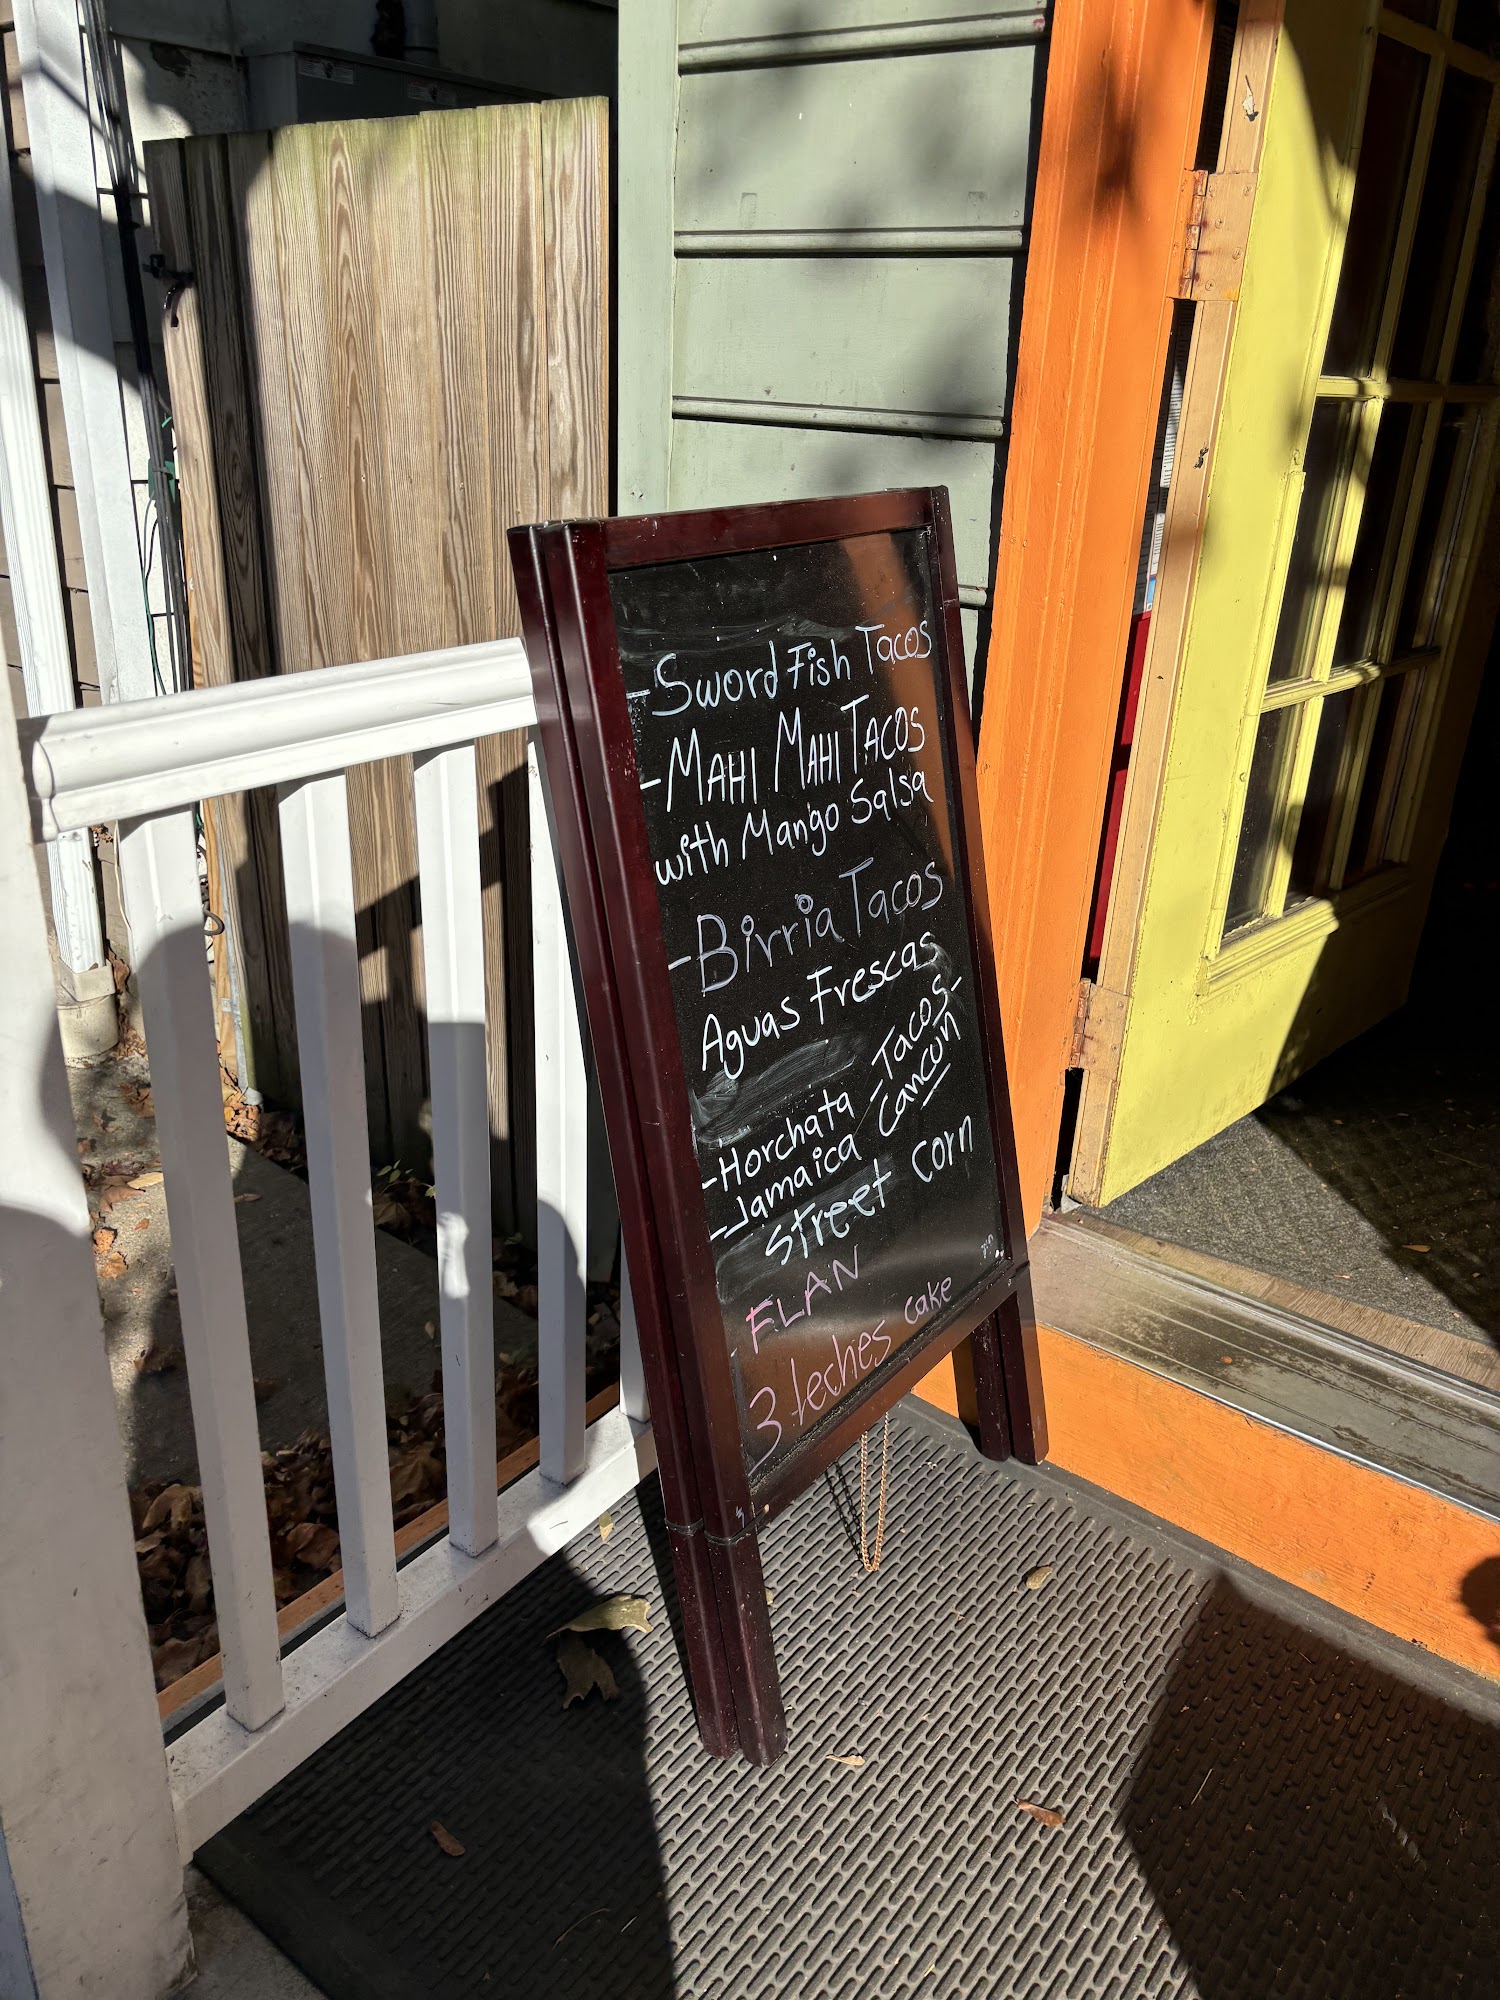 - Sword Fish Tacos
- MAHI MAHI TACOS
with Mango Salsa
- Birria Tacos
Aguas Frescas
- Horchata
- Jamaica
- Tacos -
Cancun
street corn
- FLAN
3 leches cake